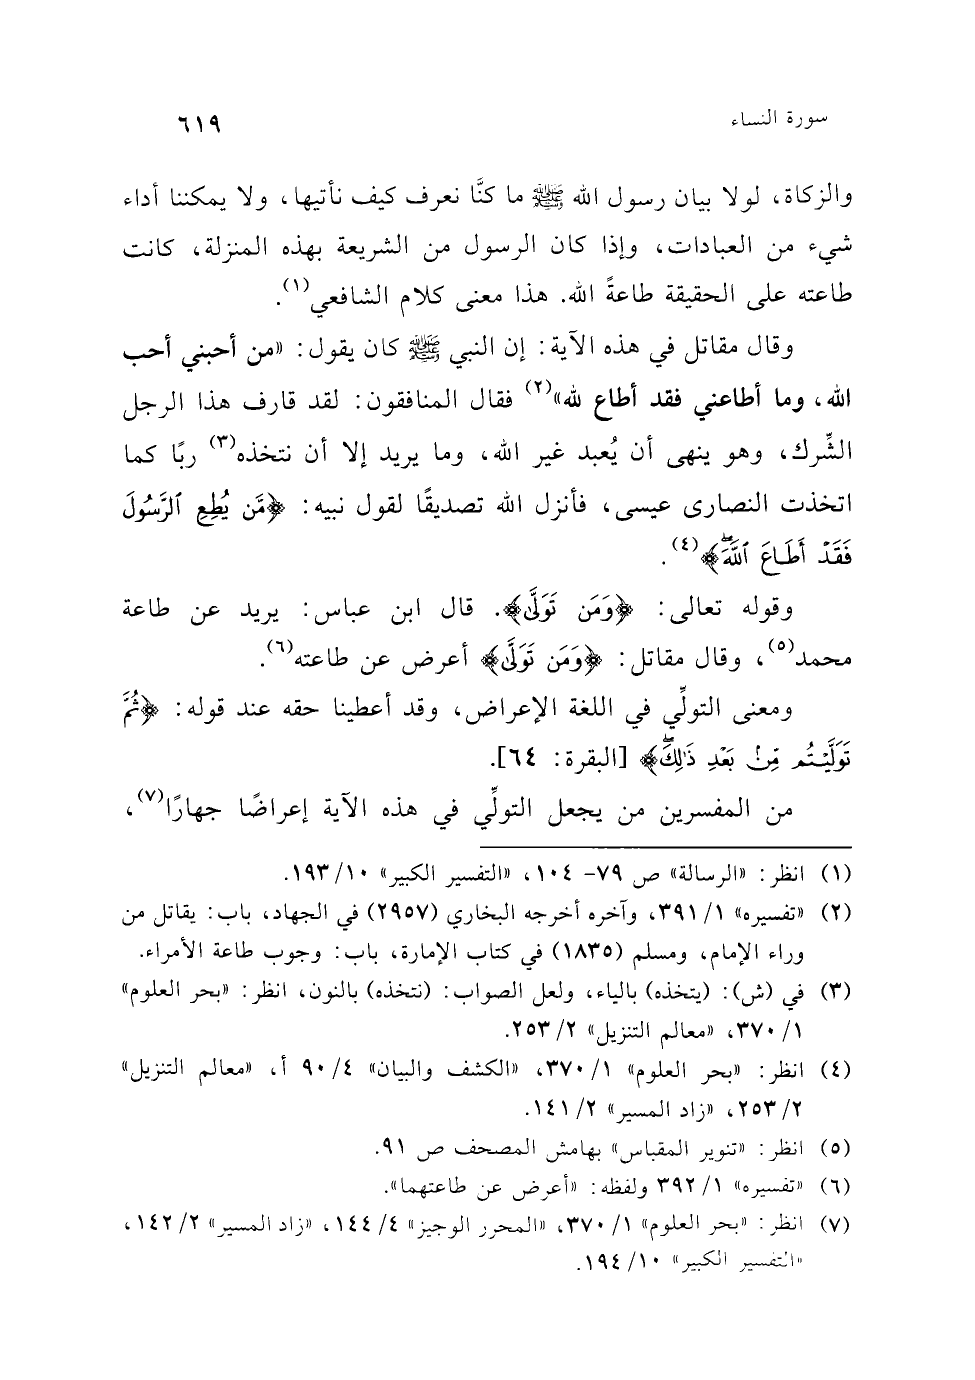 سورة النساء ٦١٩
والزكاة، لولا بيان رسول الله ﷺ ما كنَّا نعرف كيف نأتيها، ولا يمكننا أداء
شيء من العبادات، وإذا كان الرسول من الشريعة بهذه المنزلة، كانت
طاعته على الحقيقة طاعةً الله. هذا معنى كلام الشافعي(١).
وقال مقاتل في هذه الآية: إن النبي ﷺ كان يقول: «من أحبني أحب
الله، وما أطاعني فقد أطاع لله»(٢) فقال المنافقون: لقد قارف هذا الرجل
الشِّرك، وهو ينهى أن يُعبد غير الله، وما يريد إلا أن نتخذه(٣) ربًا كما
اتخذت النصارى عيسى، فأنزل الله تصديقًا لقول نبيه: ﴿مَّن يُطِعِ ٱلرَّسُولَ
فَقَدْ أَطَاعَ ٱللَّهَۖ﴾(٤).
وقوله تعالى: ﴿وَمَن تَوَلَّىٰ﴾. قال ابن عباس: يريد عن طاعة
محمد(٥)، وقال مقاتل: ﴿وَمَن تَوَلَّىٰ﴾ أعرض عن طاعته(٦).
ومعنى التولِّي في اللغة الإعراض، وقد أعطينا حقه عند قوله: ﴿ثُمَّ
تَوَلَّيْتُم مِّنۢ بَعْدِ ذَٰلِكَۖ﴾ [البقرة: ٦٤].
من المفسرين من يجعل التولِّي في هذه الآية إعراضًا جهارًا(٧)،
(١) انظر: «الرسالة» ص ٧٩- ١٠٤، «التفسير الكبير» ١٠/ ١٩٣.
(٢) «تفسيره» ١/ ٣٩١، وآخره أخرجه البخاري (٢٩٥٧) في الجهاد، باب: يقاتل من
وراء الإمام، ومسلم (١٨٣٥) في كتاب الإمارة، باب: وجوب طاعة الأمراء.
(٣) في (ش): (يتخذه) بالياء، ولعل الصواب: (نتخذه) بالنون، انظر: «بحر العلوم»
١/ ٣٧٠، «معالم التنزيل» ٢/ ٢٥٣.
(٤) انظر: «بحر العلوم» ١/ ٣٧٠، «الكشف والبيان» ٤/ ٩٠ أ، «معالم التنزيل»
٢/ ٢٥٣، «زاد المسير» ٢/ ١٤١.
(٥) انظر: «تنوير المقباس» بهامش المصحف ص ٩١.
(٦) «تفسيره» ١/ ٣٩٢ ولفظه: «أعرض عن طاعتهما».
(٧) انظر: «بحر العلوم» ١/ ٣٧٠، «المحرر الوجيز» ٤/ ١٤٤، «زاد المسير» ٢/ ١٤٢،
«التفسير الكبير» ١٠/ ١٩٤.